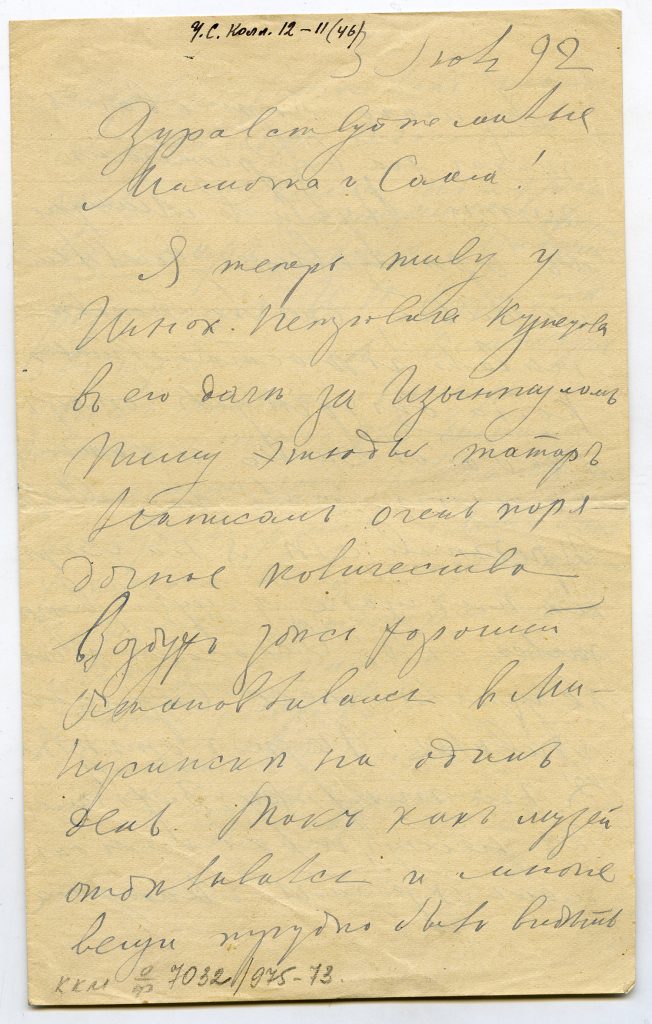 У.С. Колл. 12-11(46)
3 Июля 92
Здравствуйте милые
Мамочка и Саша!
Я теперь живу у
Инок. Петровича Кузнецова
въ его дачи за Узунжуломъ
Пишу этюды татаръ
Написалъ очень поря-
дочное количество
Воздухъ здесь хорошiй
Останавливался в Ми-
нусинске на одинъ
день. Такъ какъ музей
отбѣливался и многiе
вещи трудно было видѣть
ККМ 7032/975-73.